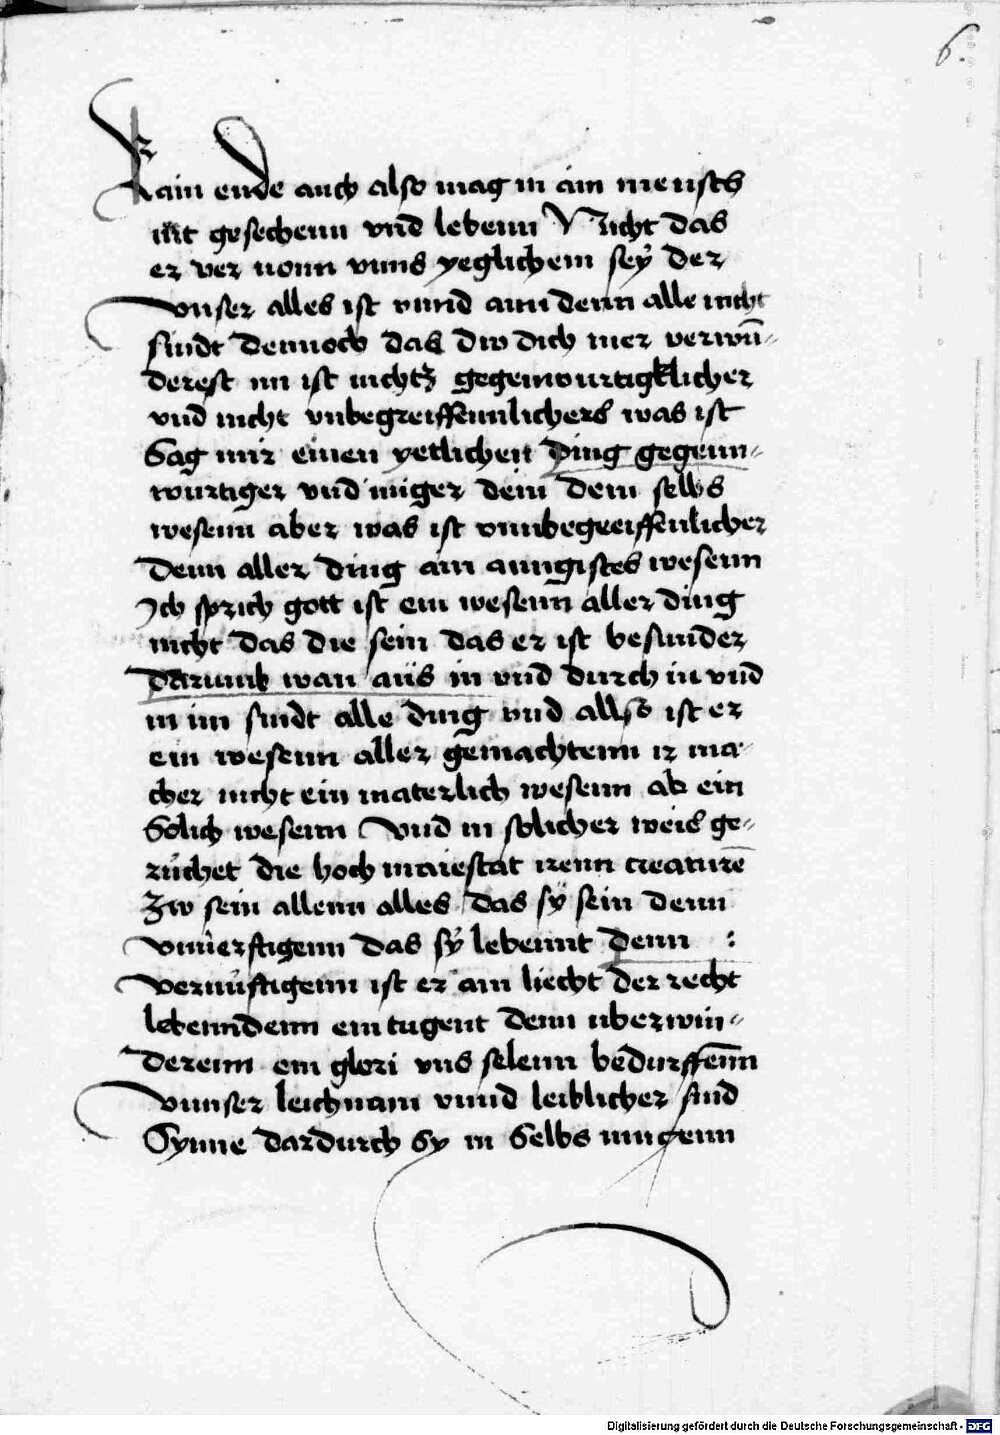 6.
Kain ende auch also mag in ain mensch
nit gesechenn vnd lebenn Nicht das
er ver vonn vnns yeglichem seÿ der
vnser alles ist vnnd ann denn alle nicht
sindt dennoch das dw dich mer verwū-
derest nn ist nichtz gegenwurtigklicher
vnd nicht vnbegreiffennlichers was ist
Sag mir einen yetlichen ding gegenn-
wurtiger vnd inniger dein dem selbs
wesenn aber was ist vnnbegreiffenlicher
denn aller ding ain ainigistes wesenn
Ich sprich gott ist ein wesenn aller ding
nicht das die sein das er ist besunder
darumb wan aus in vnd durch in vnd
in im sindt alle ding vnd allso ist er
ein wesenn aller gemachtenn ir ma-
cher nicht ein materlich wesenn ab ein
Solich wesenn Vnd in solicher weis ge-
rüchet die hoch maiestat irenn creaturē
Zw sein allenn alles das sÿ sein denn
vnuerstigenn das sÿ lebennt denn :
vernüftigenn ist er ain liecht der recht
lebenndenn ein tugent denn uberwin-
derenn ein glori vns selenn bedurffenn
vnnser leichnam vnnd leiblicher sind
Synne dardurch sy in selbs mugenn
Digitalisierung gefördert durch die Deutsche Forschungsgemeinschaft - DFG